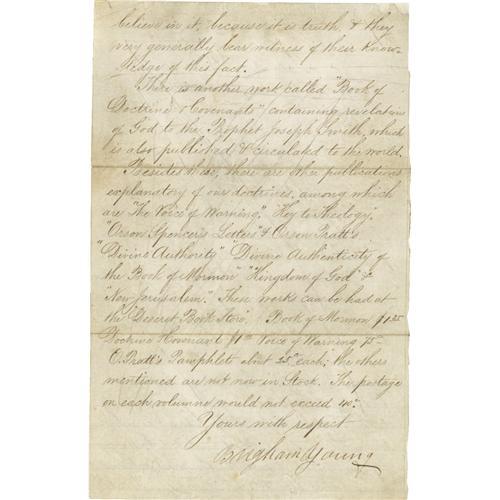 believe in it, because it is truth, & they
very generally bear witness of their know-
ledge of this fact.
There is another work called "Book of
Doctrine & Covenants" (containing revelations
of God to the Prophet Joseph Smith, which
is also published & circulated to the world.
Besides these, there are other publications
explanatory of our doctrines, among which
are "The Voice of Warning," "Key to Theology,"
"Orson Spencer's Letters" & Orson Pratt's
"Divine Authority" "Divine Authenticity of
the Book of Mormon" "Kingdom of God" &
"New Jerusalem." These works can be had at
the "Deseret Book Store". Book of Mormon $1.25
Doctrine & Covenant $1 Voice of Warning 75
O. Pratt's Pamphlets about 25 each; the others
mentioned are not now in Stock. The postage
on each volumne would not exceed 40¢.
Yours with respect
Brigham Young